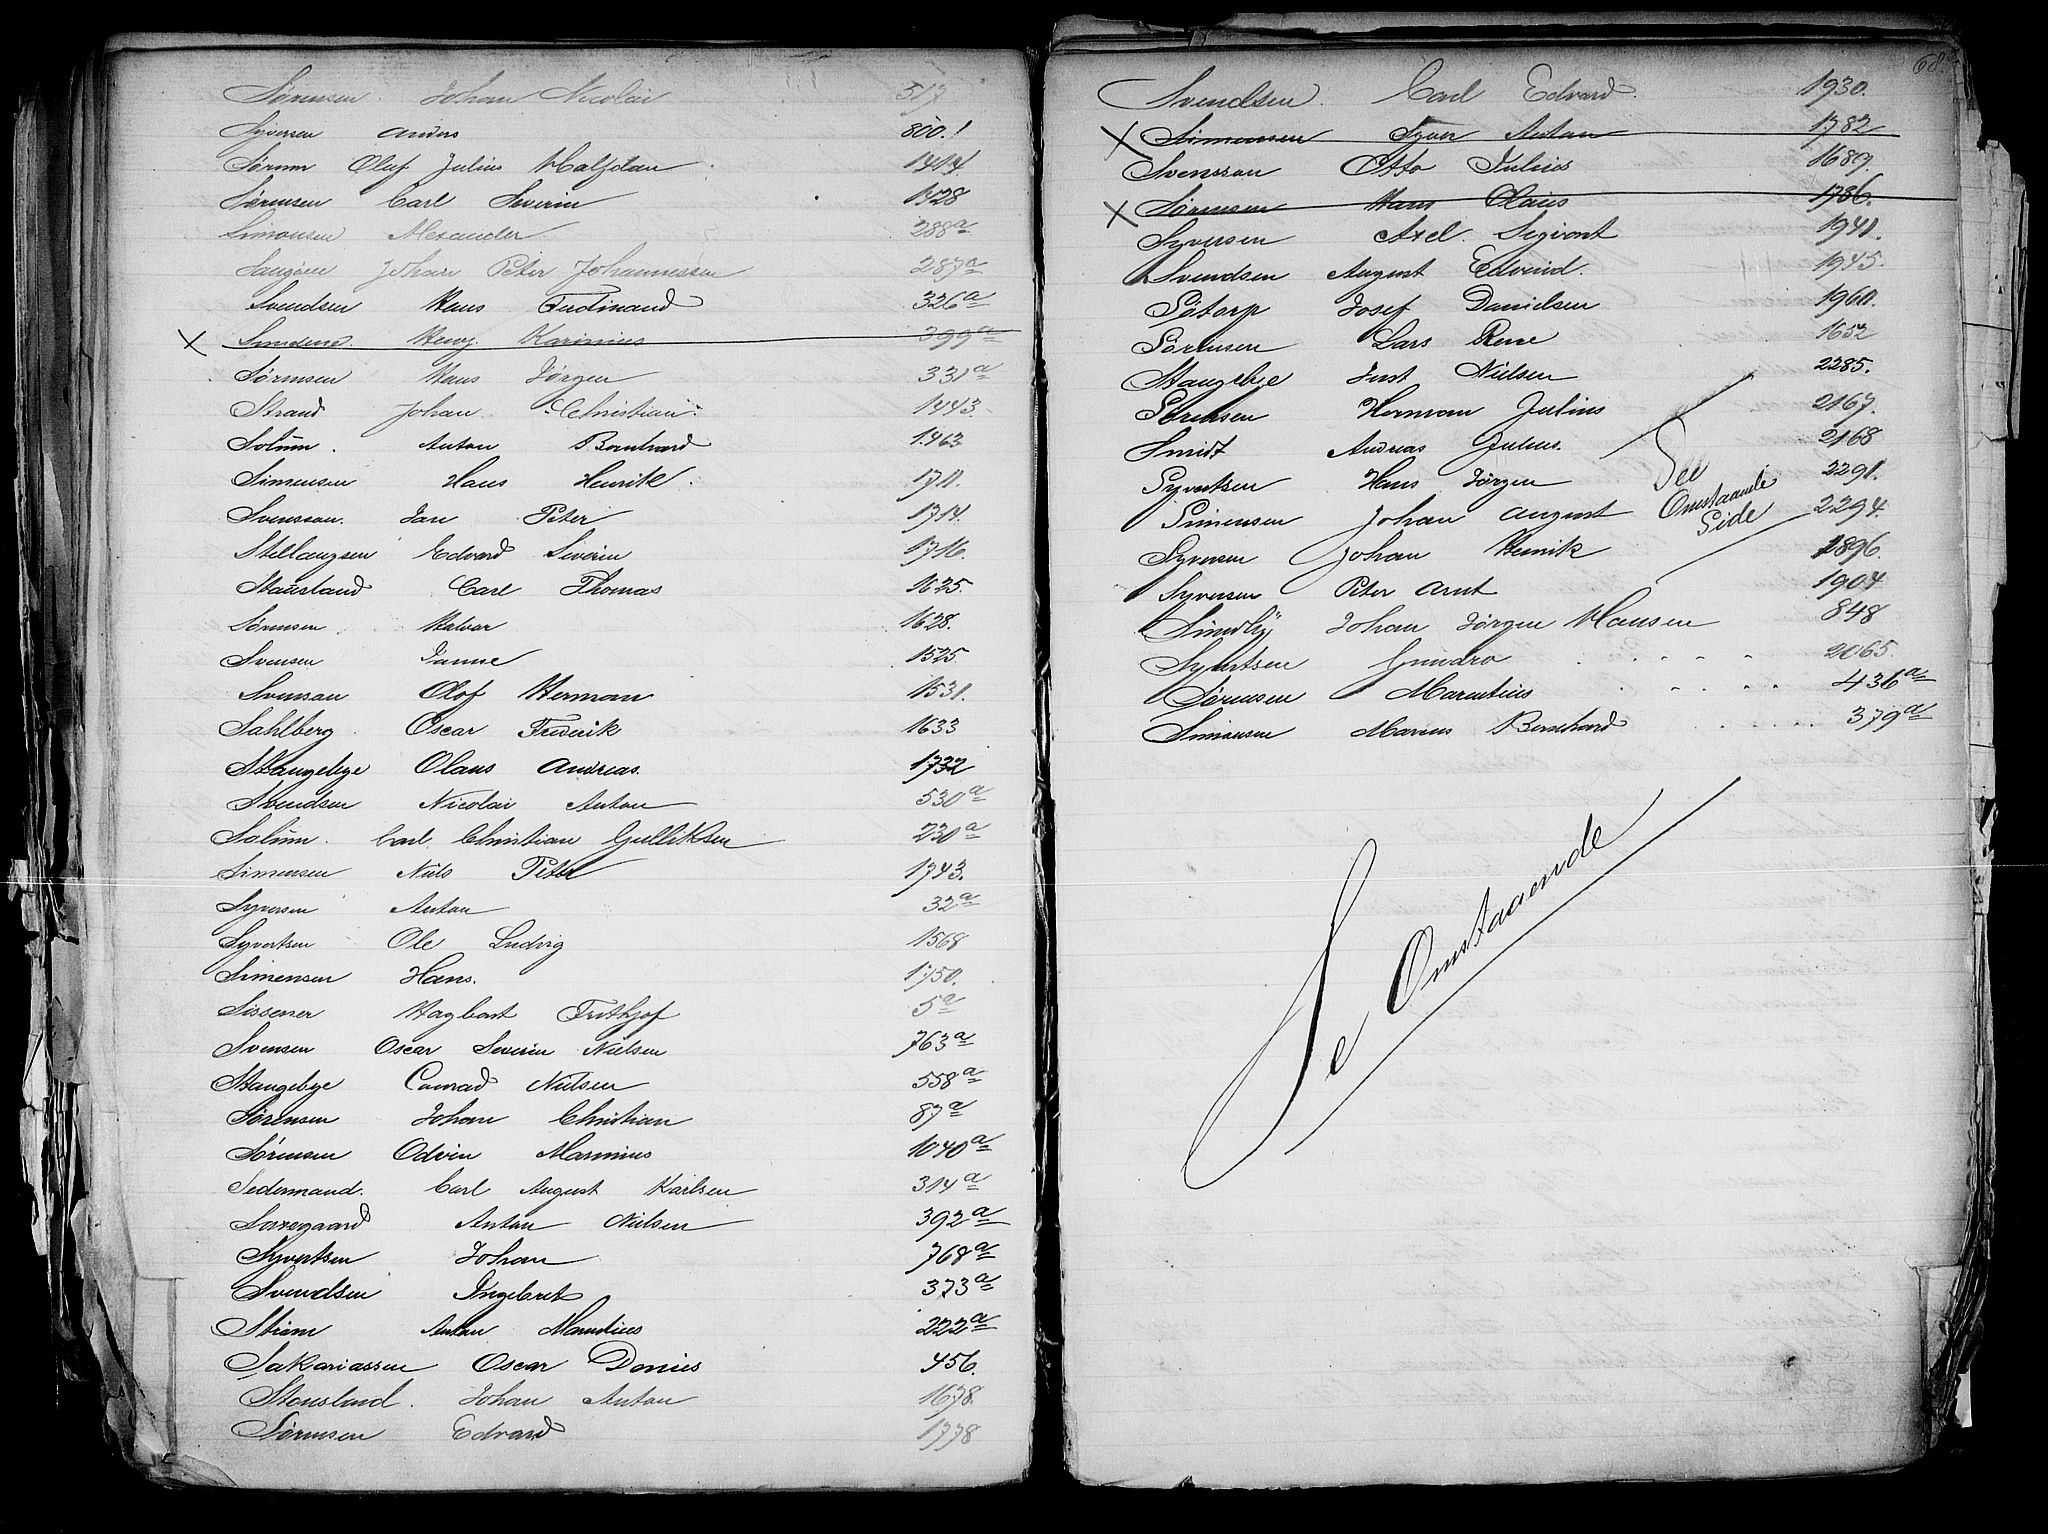 Sørensen. Johan Nicolai 517
Syversen Anders 800.!
Sørum Olaf Julius Halfdan 1414.
Sørensen Carl Severin 1428
Simonsen Alexander 288a
Johan Peter Johannessen 287a
Svendsen Hans Ferdinand 326a
Henry Karinius 399a
Sørensen Hans Jørgen 331a
Strand Johan Christian. 1443.
Solúm. Anton Bernhard 1463
Simensen Hans Henrik. 1711.
Svensson. Jan Peter 1714.
Edvard Severin 1716.
Stausland Carl Thomas 1625.
Sørensen Halvor 1628.
Svensen Janne 1525.
Svensan Olof Herman 1531.
Sahlberg Oscar Frederik 1633
Stangebye Olaus Andreas. 1732
Svendsen Nicolai Anton 530a
Solúm. Carl Christian Gulliksen 230a
Simensen Nils Peter 1743.
Syversen Anton 32a
Syvertsen Ole Ludvig 1568
Simensen Hans. 1750.
Sissener Hagbart Frithjof 5a
Svensen Oscar Severin Nielsen 763a
Stangebye Conrad Nielsen 558a
Sørensen Johan Christian 87a
Sørensen Odvin Marinius 1040a
Sedermand. Carl August Karlsen 314a
Anton Nielsen 392a
Syvertsen Johan 768a
Svendsen Ingebret 373a
Strøm Anton Mandius 222a
Sakariassen Oscar Donius 456.
Stousland. Johan Anton 1678.
Sørensen Edvard 1778
68.
Svendsen. Carl Edvard. 1930.
X Simensen Syver Anton 1782
Svensson Otto Julius 1689.
X Sørensen Hans Olaus 1786.
Syversen Axel. Sigvart 1941.
Svendsen August Edvind. 1945.
Søtorp Josef Danielsen 1960.
Sørensen Lars Rene 1652
Stangebye Just Nielsen 2285.
Sørensen Herman Julius 2167.
Smidt Andreas Julius. 2168
Syvertsen Hans Jørgen See 2291.
Simensen Johan August Omstaaende Side 2294.
Syversen Johan Henrik 1896.
Syversen Peter Arnt 1904
Sundby Johan Jørgen Hansen 848
Syvertsen Gundro 2065.
Sørensen Marentius 436a
Simonsen Marius Bernhard 379a
Se Omstaaende